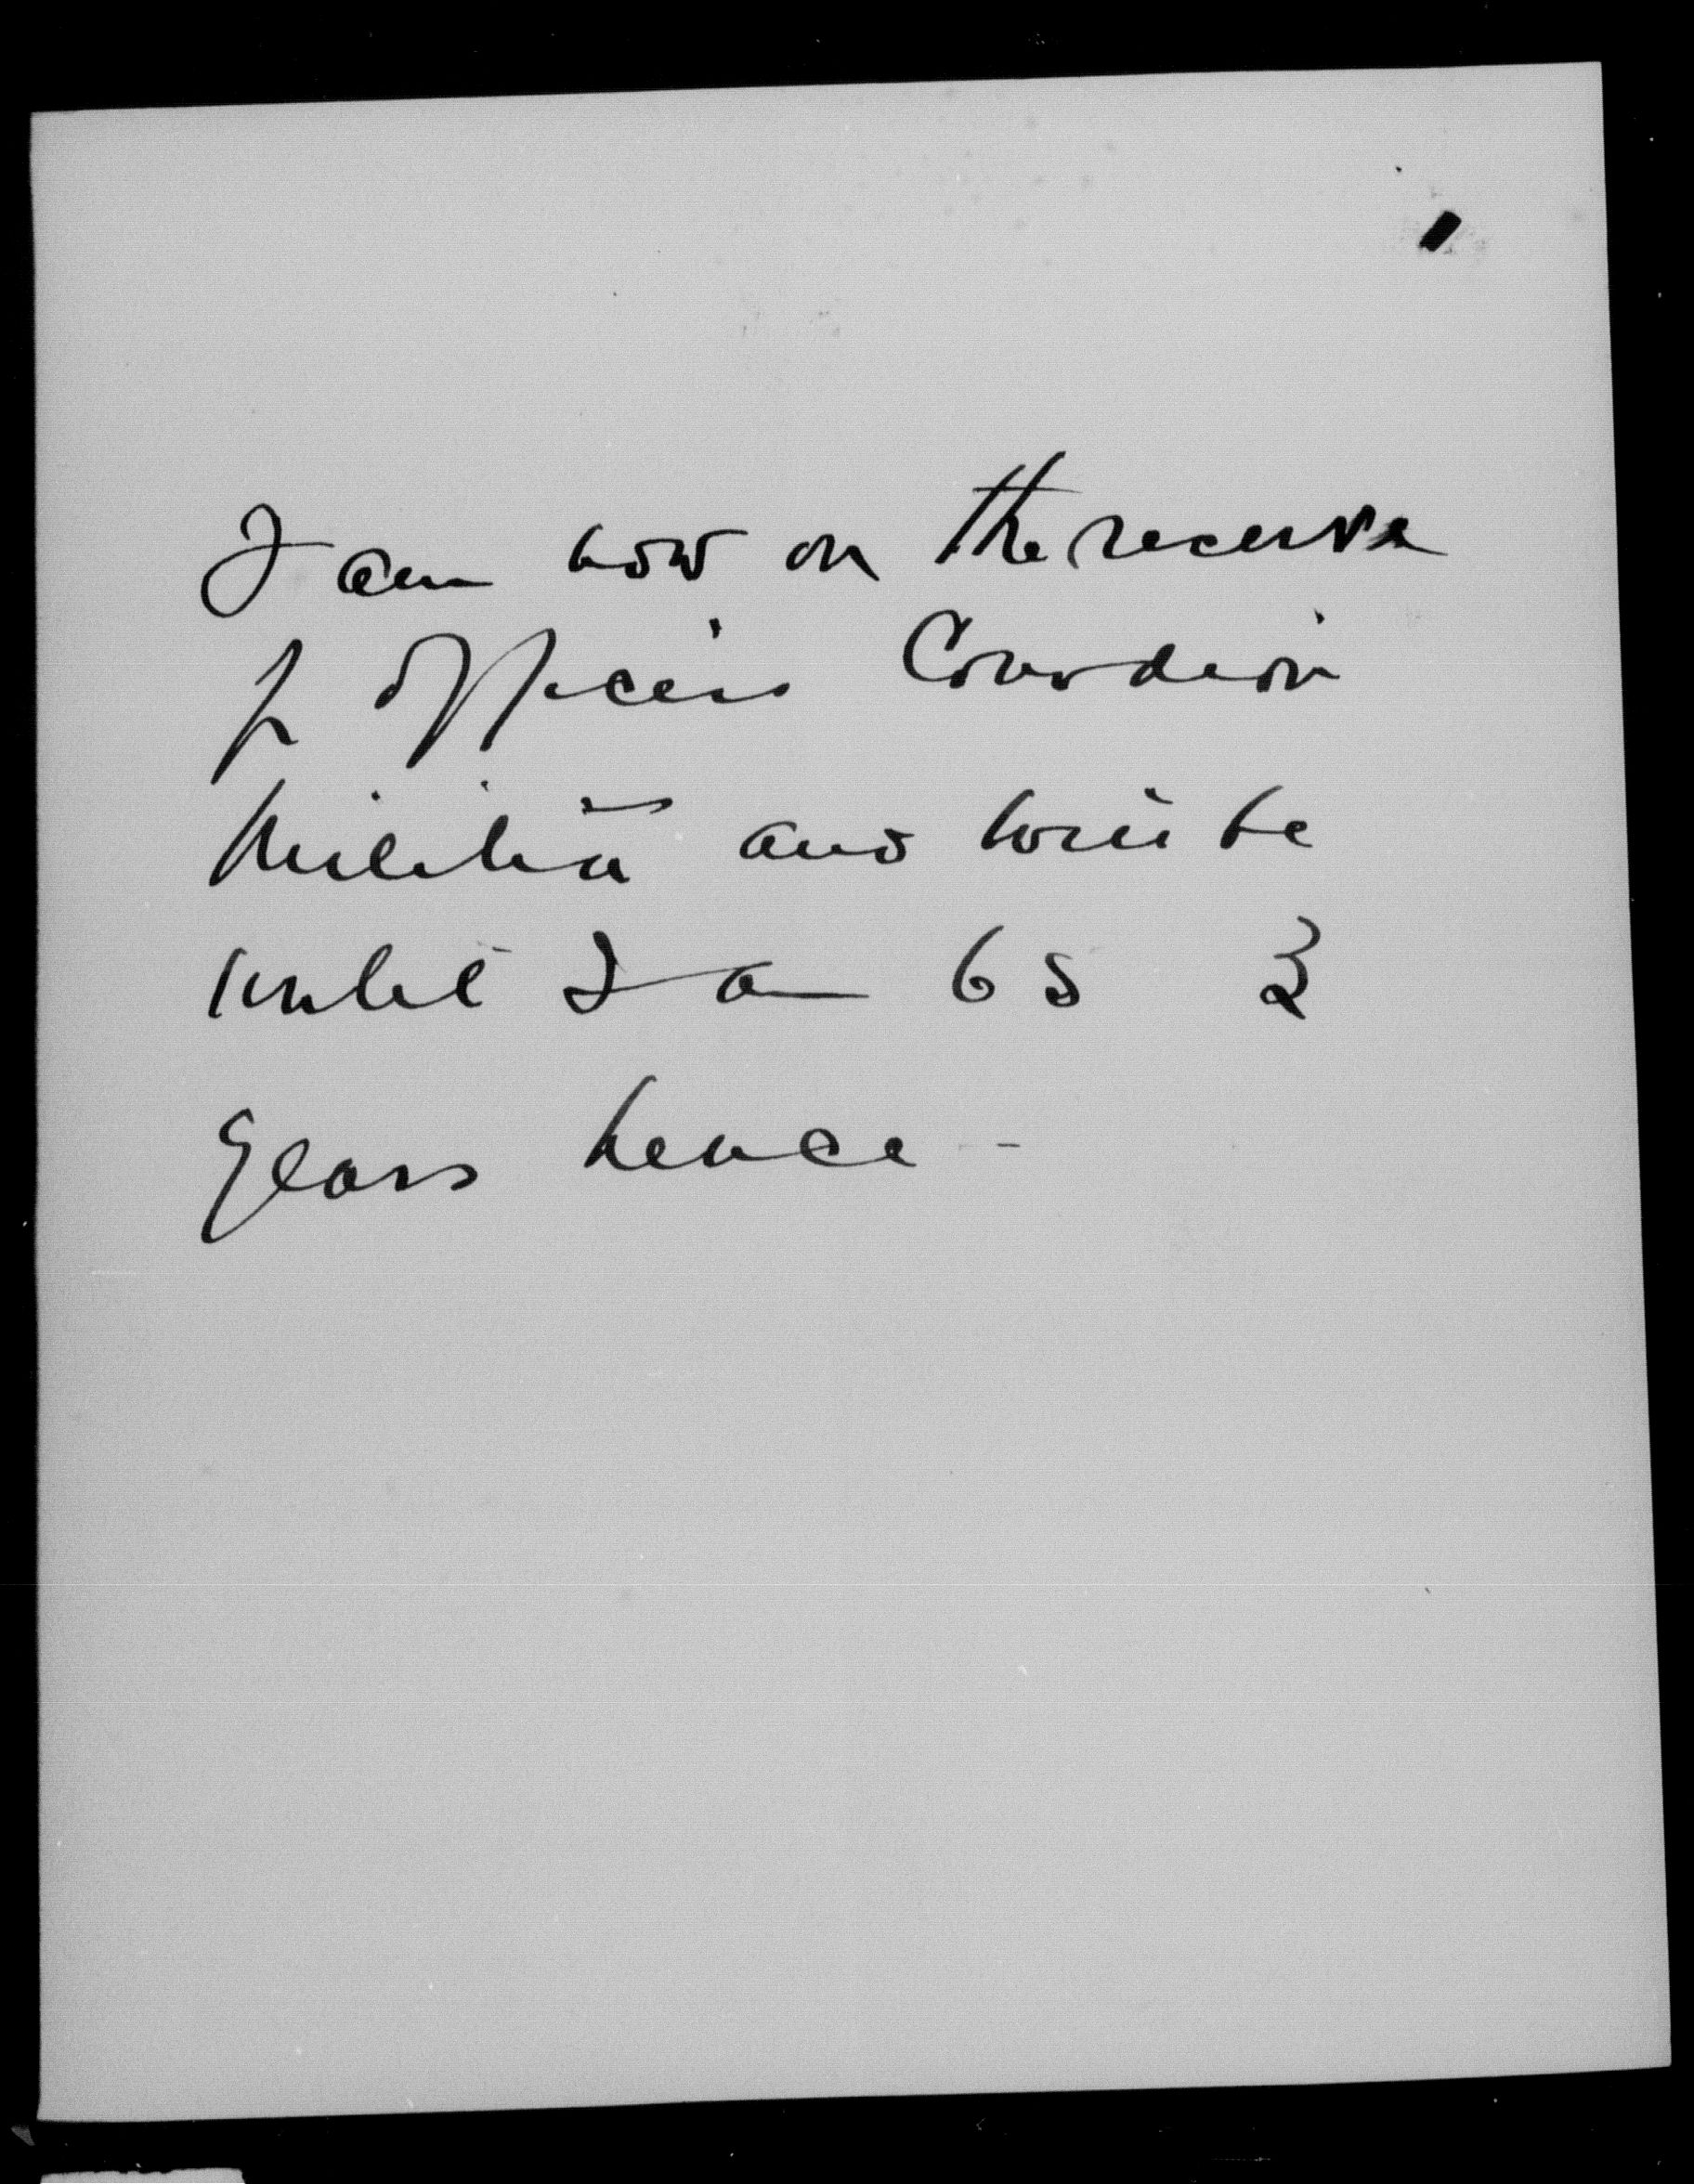 I am now on the reserve
of officers Canadian
Militia and will be
until I am 65 3
years hence -